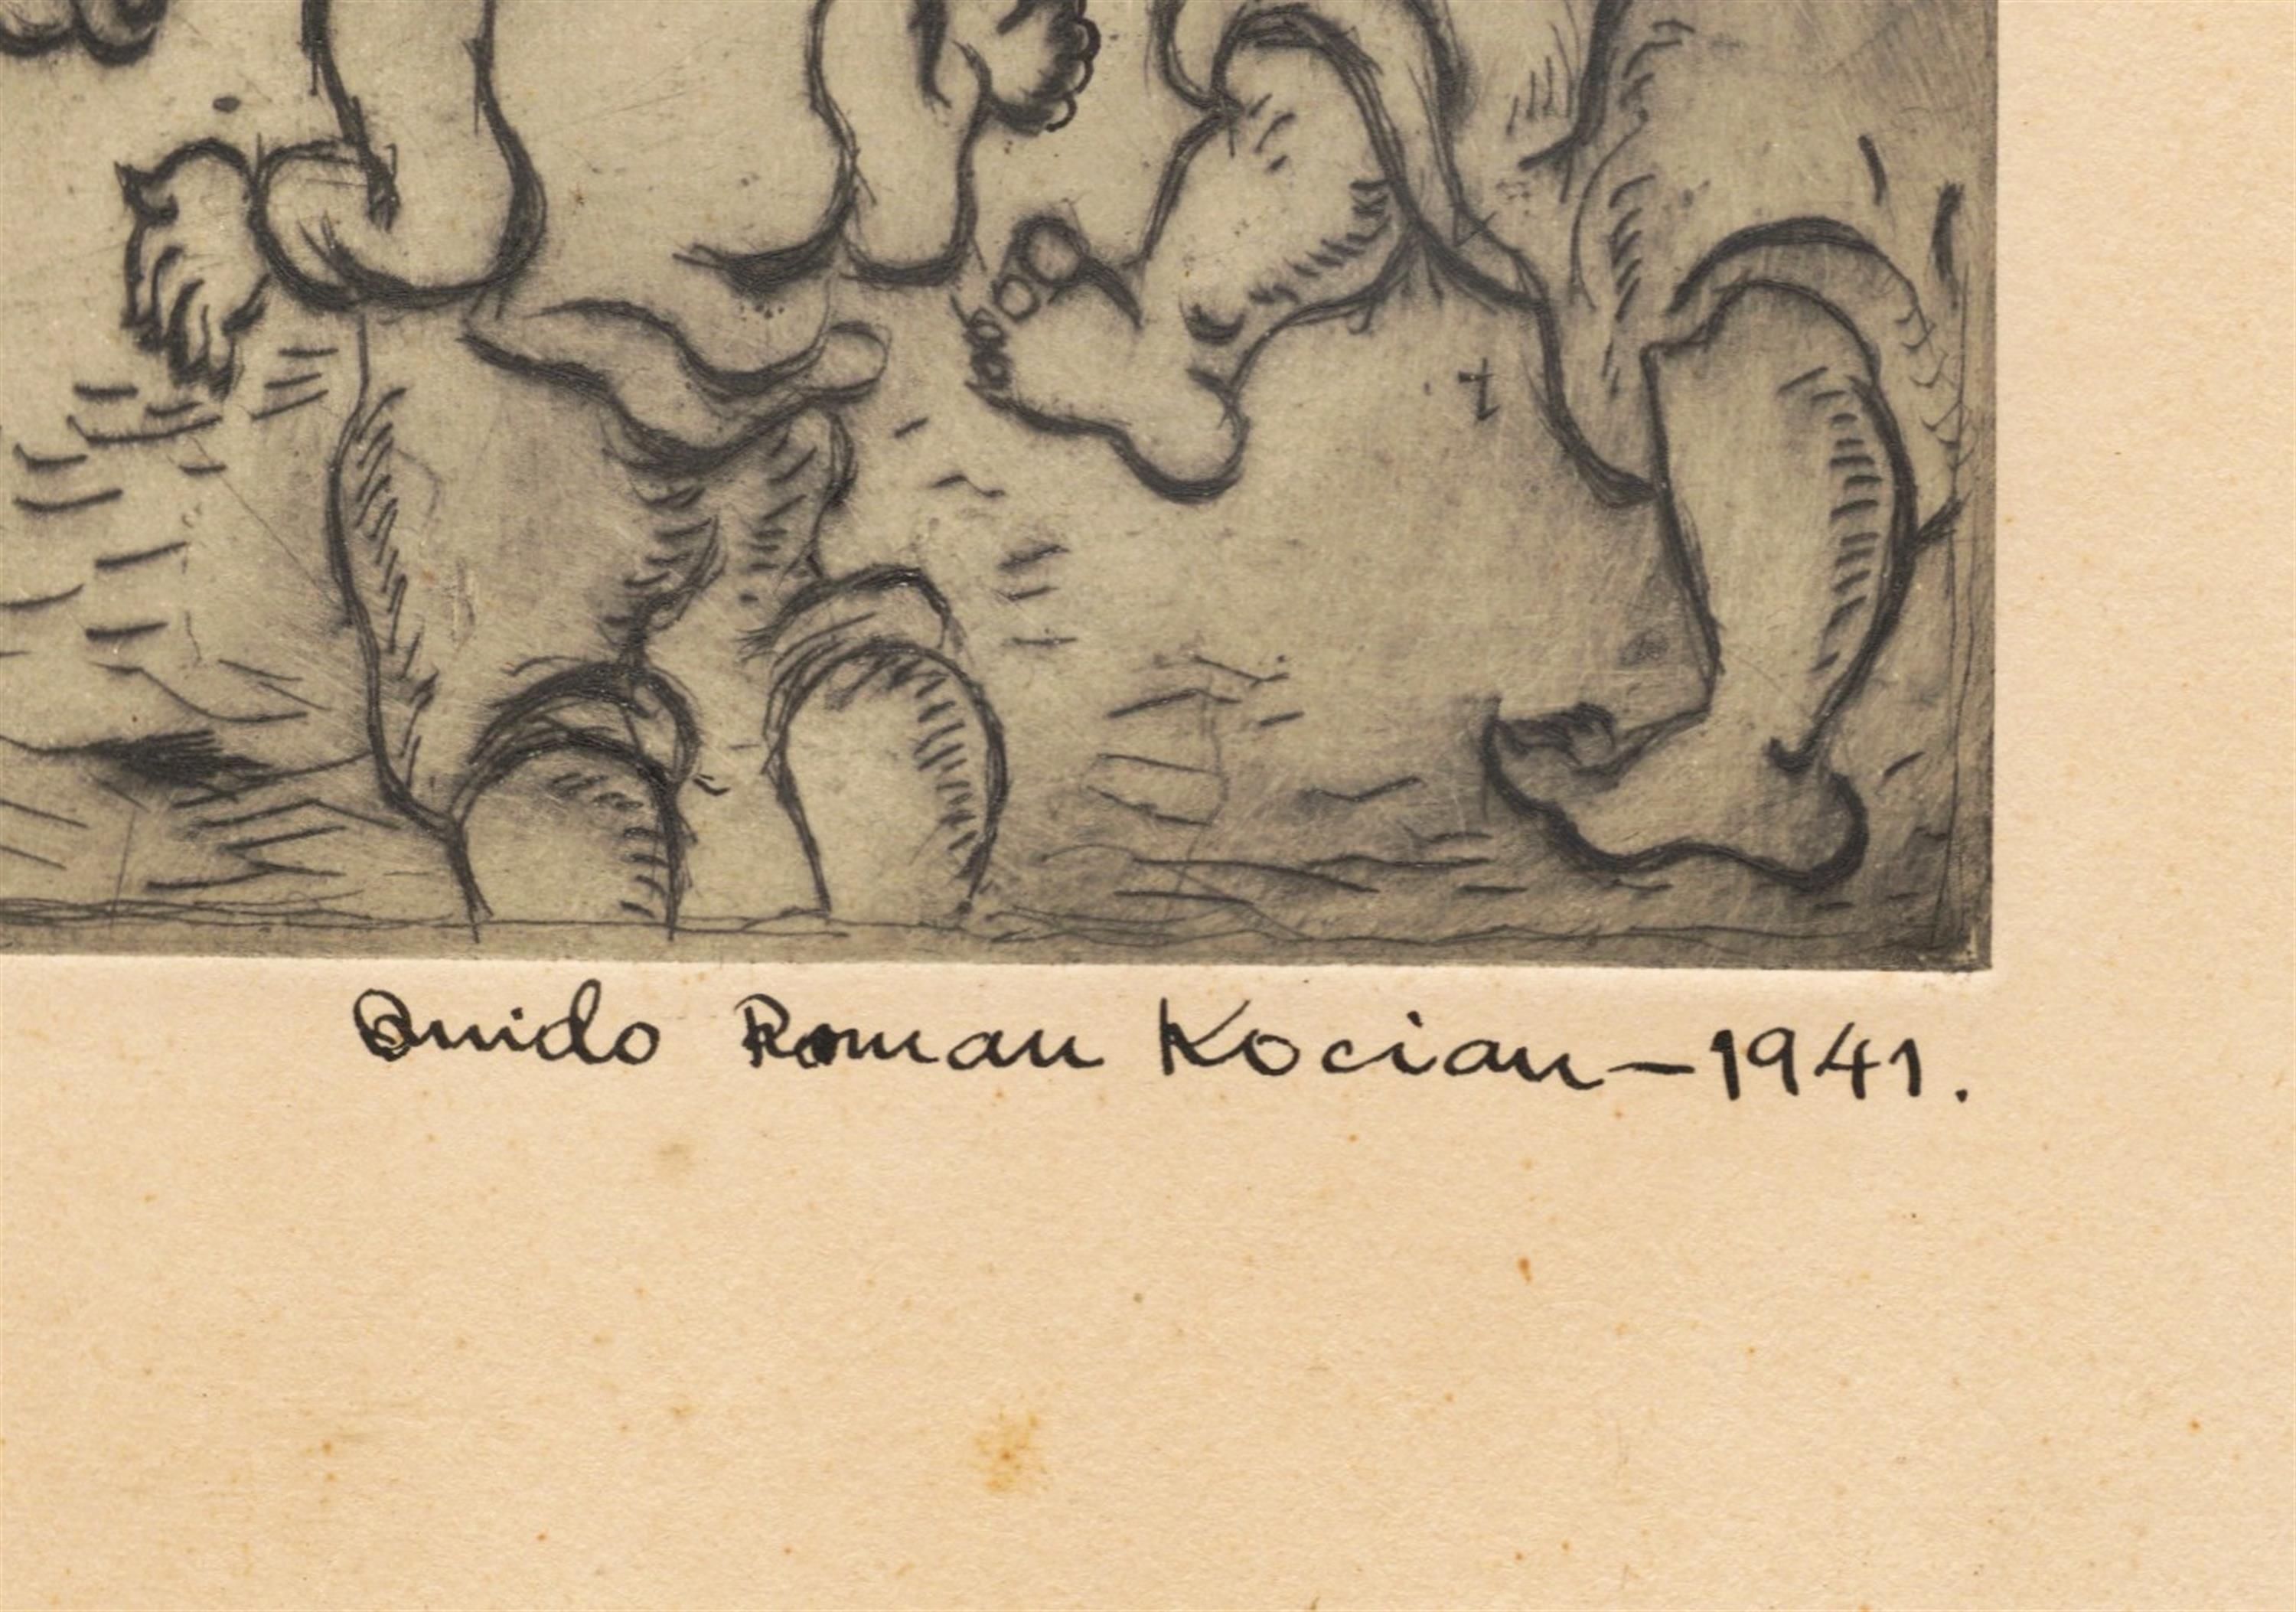 Quido Roman Kocian – 1941.